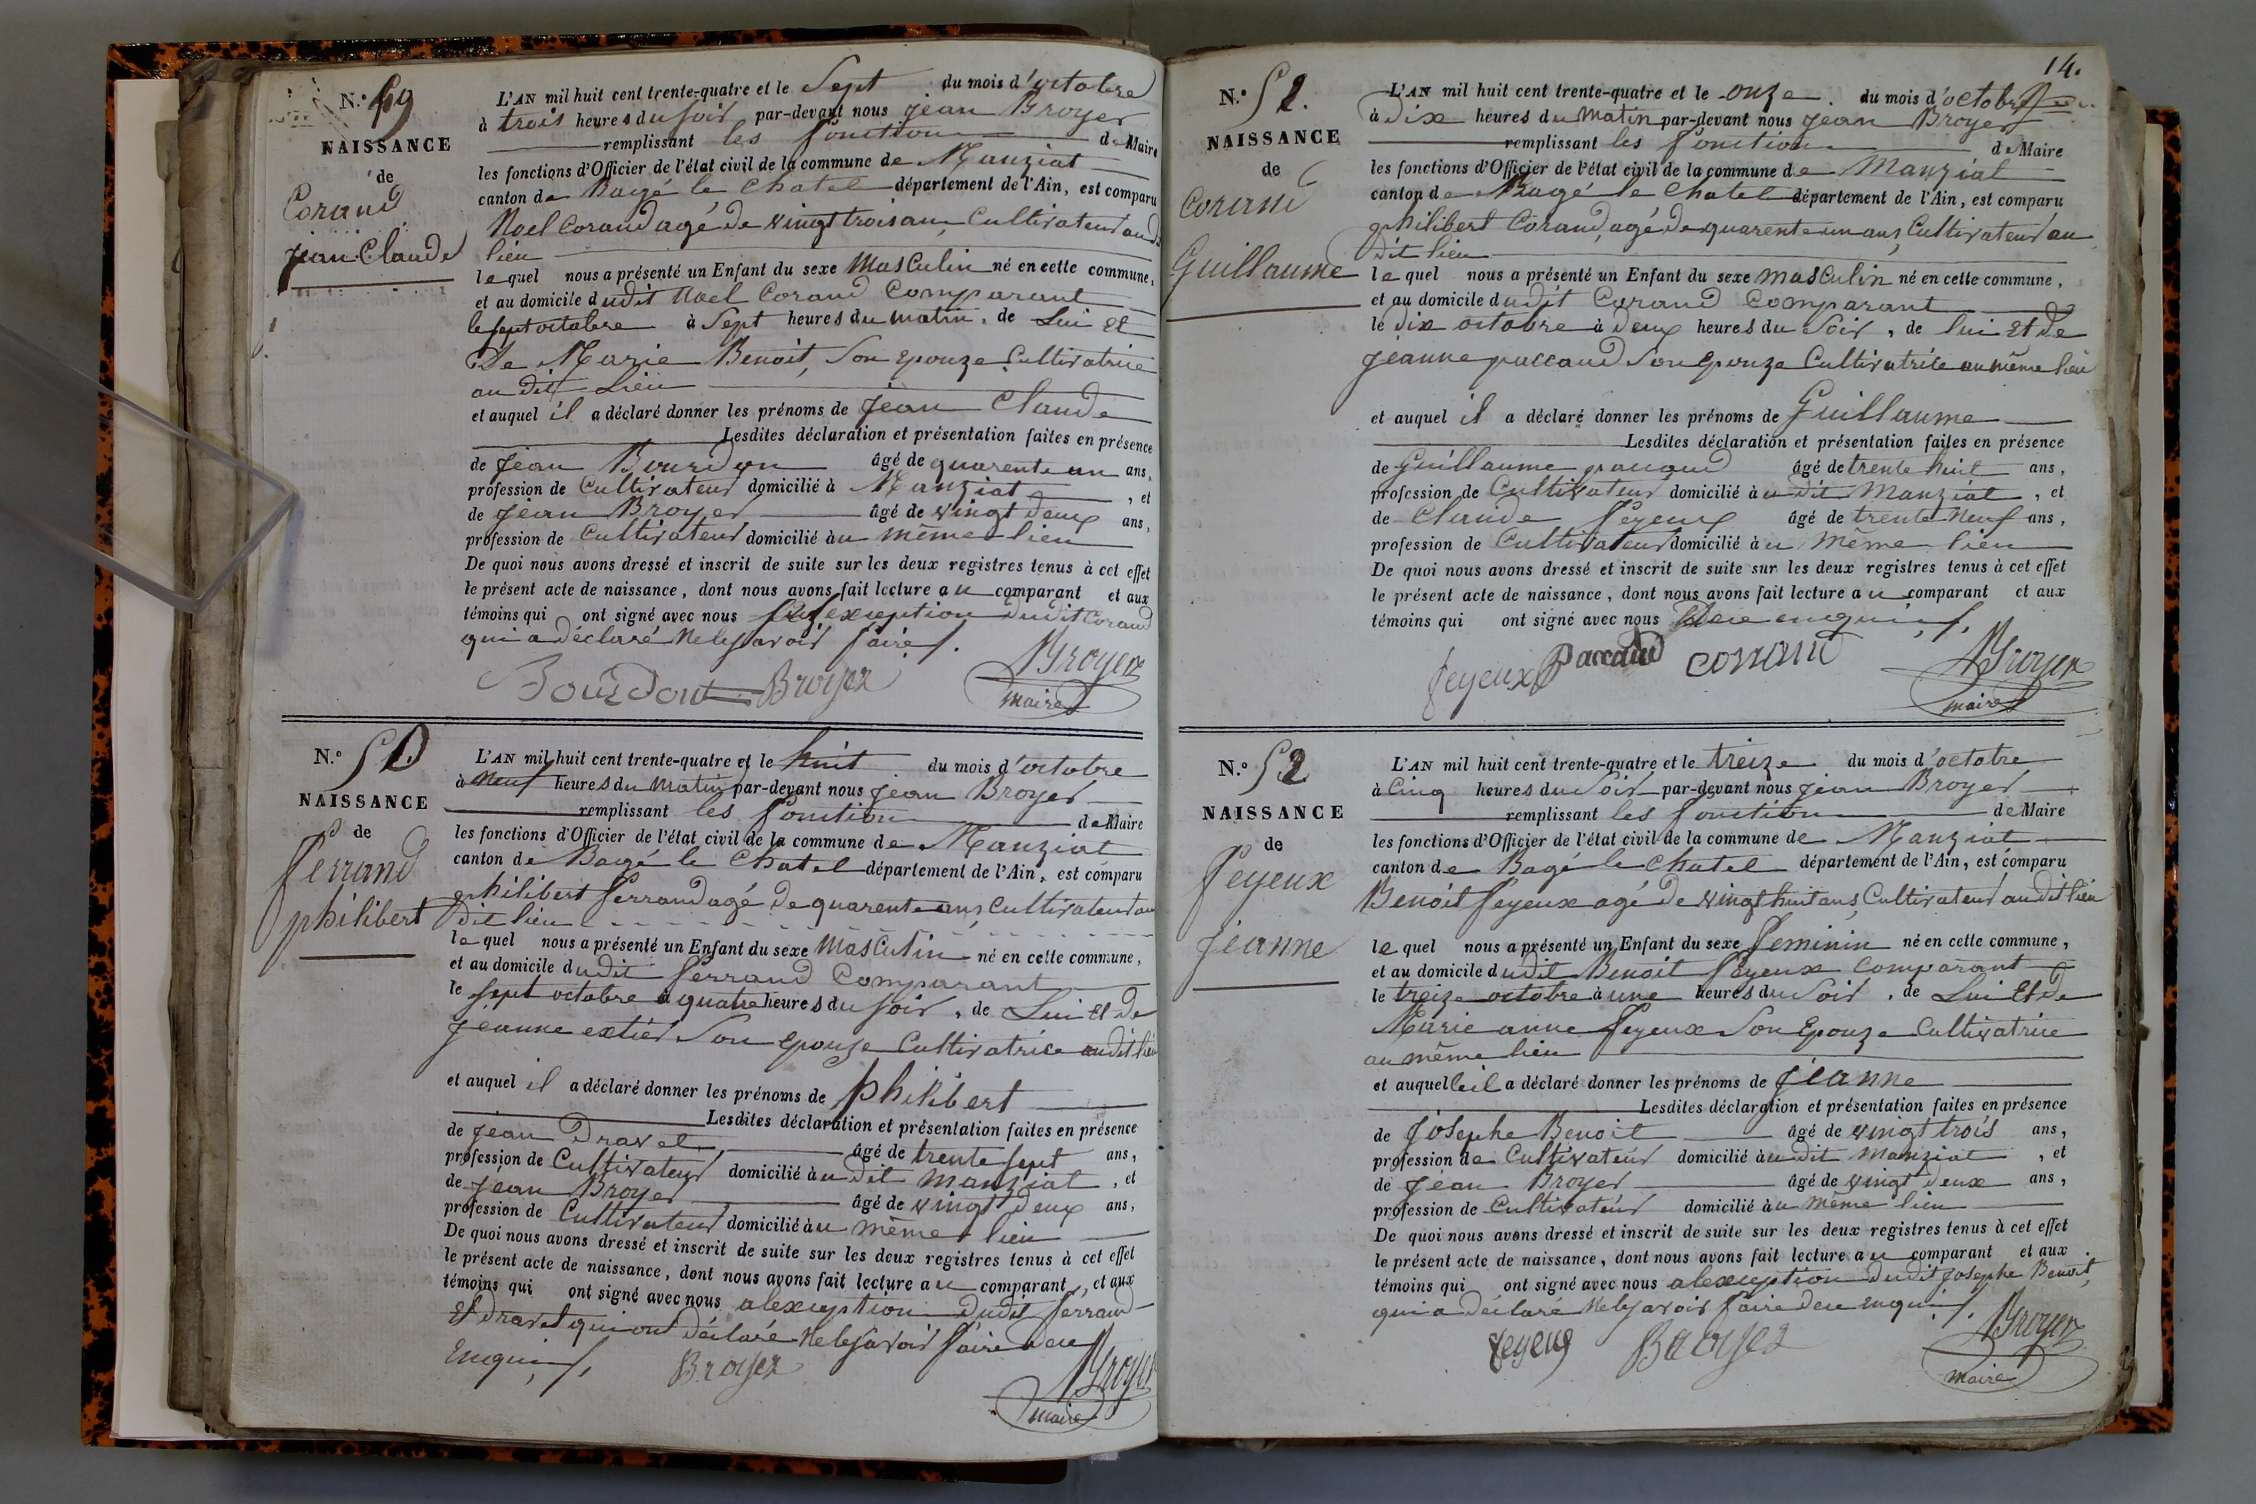 N.° 49
NAISSANCE
de
Corand
jean Claude
L'AN mil huit cent trente-quatre et le Sept du mois d'octobre
à trois heures du soir par-devant nous jean Broyer
remplissant les fonction de Maire
les fonctions d'Officier de l'état civil de la commune de Manziat
canton de Bagé le Chatel département de l'Ain, est comparu
Noel Corand agé de vingt trois ans, Cultivateur au dit
lieu
lequel nous a présenté un Enfant du sexe Masculin né en cette commune,
et au domicile dudit Noel Corand Comparant
le sept octobre à Sept heures du matin, de Lui et
De Marie Benoit, Son Epouze Cultivatrice
au dit Lieu
et auquel il a déclaré donner les prénoms de Jean Claude
Lesdites déclaration et présentation faites en présence
de Jean Bourdon âgé de quarente un ans,
profession de Cultivateur domicilié à Manziat, et
de Jean Broyer âgé de vingt deux ans,
profession de Cultivateur domicilié au même lieu
De quoi nous avons dressé et inscrit de suite sur les deux registres tenus à cet effet
le présent acte de naissance, dont nous avons fait lecture au comparant et aux
témoins qui ont signé avec nous exception dudit Corand
qui a déclaré ne le savoir faire
Bourdont Broyer Broyer
maire
N.° 50
NAISSANCE
de
ferrand
philibert
L'AN mil huit cent trente-quatre et le huit du mois d'octobre
à neuf heures du matin par-devant nous jean Broyer
remplissant les fonction de Maire
les fonctions d'Officier de l'état civil de la commune de Manziat
canton de Bagé le Chatel département de l'Ain, est comparu
philibert ferrand agé de quarente ans, Cultivateur au
dit lieu
lequel nous a présenté un Enfant du sexe Masculin né en cette commune,
et au domicile dudit ferrand Comparant
le sept octobre à quatre heures du soir, de Lui et de
jeanne extier Son epouze Cultivatrice audit lieu
et auquel il a déclaré donner les prénoms de philibert
Lesdites déclaration et présentation faites en présence
de jean Dravet âgé de trente sept ans,
profession de Cultivateur domicilié audit Manziat, et
de jean Broyer âgé de vingt deux ans,
profession de Cultivateur domicilié au même lieu
De quoi nous avons dressé et inscrit de suite sur les deux registres tenus à cet effet
le présent acte de naissance, dont nous avons fait lecture au comparant, et aux
témoins qui ont signé avec nous alexception dudit ferrand
Et dravet qui ont déclaré ne le savoir faire de ce
Enquis
Broyer Broyer
maire
14.
N.° 51.
NAISSANCE
de
Corand
Guillaume
L'AN mil huit cent trente-quatre et le onze du mois d'octobre
à dix heures du matin par-devant nous jean Broyer
remplissant les fonction de Maire
les fonctions d'Officier de l'état civil de la commune de Manziat
canton de Bagé le Chatel département de l'Ain, est comparu
philibert Corand, agé de quarente un ans, Cultivateur au
dit lieu
lequel nous a présenté un Enfant du sexe masculin né en cette commune,
et au domicile dudit Corand Comparant
le dix octobre à deux heures du soir, de lui et de
jeanne paccaud son Epouze Cultivatrice au même lieu
et auquel il a déclaré donner les prénoms de Guillaume
Lesdites déclaration et présentation faites en présence
de Guillaume paccaud âgé de trente huit ans,
profession de Cultivateur domicilié audit Manziat, et
de Claude feyeux âgé de trente neuf ans,
profession de Cultivateur domicilié au même lieu
De quoi nous avons dressé et inscrit de suite sur les deux registres tenus à cet effet
le présent acte de naissance, dont nous avons fait lecture au comparant et aux
témoins qui ont signé avec nous De ce enquis
feyeux Paccaud corand Broyer
maire
N.° 52
NAISSANCE
de
feyeux
jeanne
L'AN mil huit cent trente-quatre et le treize du mois d'octobre
à Cinq heures du soir par-devant nous jean Broyer
remplissant les fonction de Maire
les fonctions d'Officier de l'état civil de la commune de Manziat
canton de Bagé le Chatel département de l'Ain, est comparu
Benoit feyeux agé de vingt huit ans, Cultivateur au dit lieu
lequel nous a présenté un Enfant du sexe feminin né en cette commune,
et au domicile dudit Benoit feyeux Comparant
le treize octobre à une heures du soir, de Lui et de
Marie anne feyeux Son Epouze Cultivatrice
au même lieu
et auquelle il a déclaré donner les prénoms de jeanne
Lesdites déclaration et présentation faites en présence
de Josephe Benoit âgé de vingt trois ans,
profession de Cultivateur domicilié audit Manziat, et
de Jean Broyer âgé de vingt deux ans,
profession de Cultivateur domicilié au même lieu
De quoi nous avons dressé et inscrit de suite sur les deux registres tenus à cet effet
le présent acte de naissance, dont nous avons fait lecture au comparant et aux
témoins qui ont signé avec nous alexception dudit josephe Benoit,
qui a déclaré ne le savoir faire de ce enquis
feyeux Broyer Broyer
maire